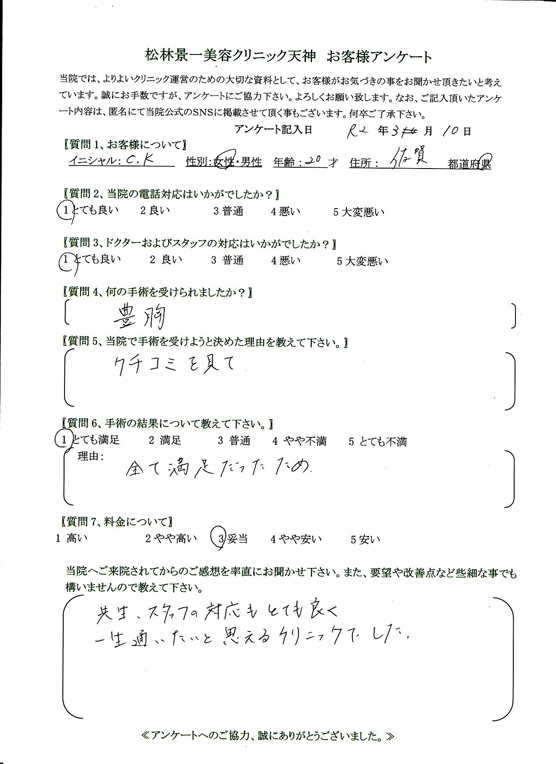 松林景一美容クリニック天神　お客様アンケート
当院では、よりよいクリニック運営のための大切な資料として、お客様がお気づきの事をお聞かせ頂きたいと考え
ています。誠にお手数ですが、アンケートにご協力下さい。よろしくお願い致します。なお、ご記入頂いたアンケ
ート内容は、匿名にて当院公式のSNSに掲載させて頂く事もございます。何卒ご了承下さい。
アンケート記入日　R2 年 3 月 10 日
【質問1、お客様について】
イニシャル：C.K　性別：女性・男性　年齢：20 才　住所：佐賀　都道府県
【質問2、当院の電話対応はいかがでしたか？】
1 とても良い　2 良い　3 普通　4 悪い　5 大変悪い
【質問3、ドクターおよびスタッフの対応はいかがでしたか？】
1 とても良い　2 良い　3 普通　4 悪い　5 大変悪い
【質問4、何の手術を受けられましたか？】
豊胸
【質問5、当院で手術を受けようと決めた理由を教えて下さい。】
クチコミを見て
【質問6、手術の結果について教えて下さい。】
1 とても満足　2 満足　3 普通　4 やや不満　5 とても不満
理由：
全て満足だったため
【質問7、料金について】
1 高い　2 やや高い　3 妥当　4 やや安い　5 安い
当院へご来院されてからのご感想を率直にお聞かせ下さい。また、要望や改善点など些細な事でも
構いませんので教えて下さい。
先生、スタッフの対応もとても良く
一生通いたいと思えるクリニックでした.
≪アンケートへのご協力、誠にありがとうございました。≫